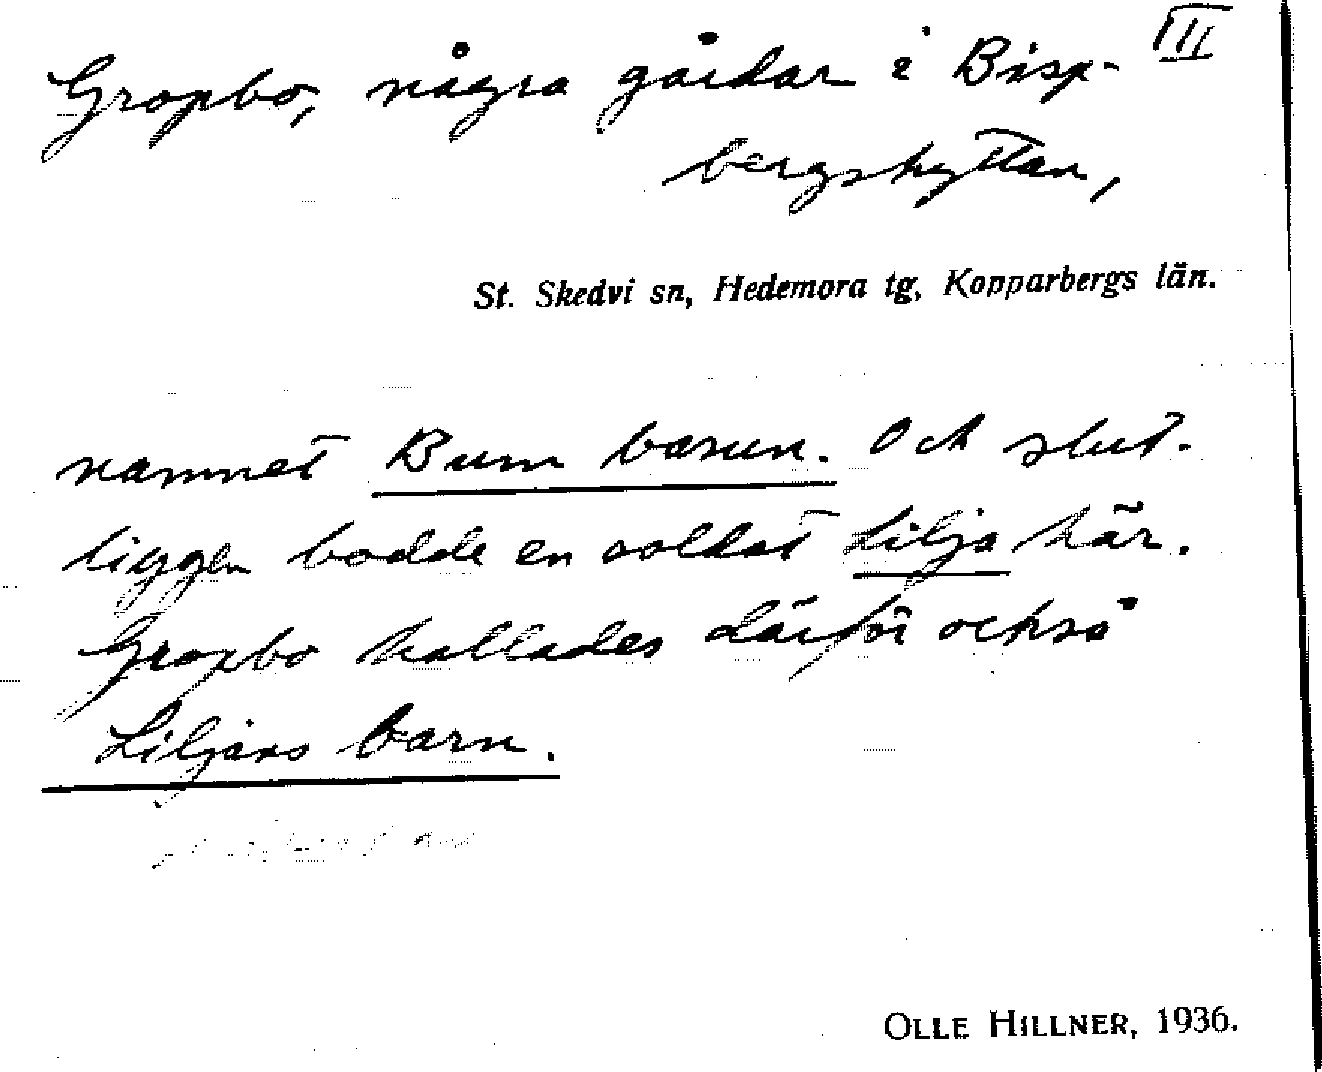 III
Gropbo, några gårdar i Bisp-
bergshyttan,
St. Skedvi sn, Hedemora tg, Kopparbergs län.
namnet Bum barnen. Och slut-
liggen bodde en soldat Lilja här.
Gropbo kallades därför också
Liljans barn.
OLLE HILLNER, 1936.